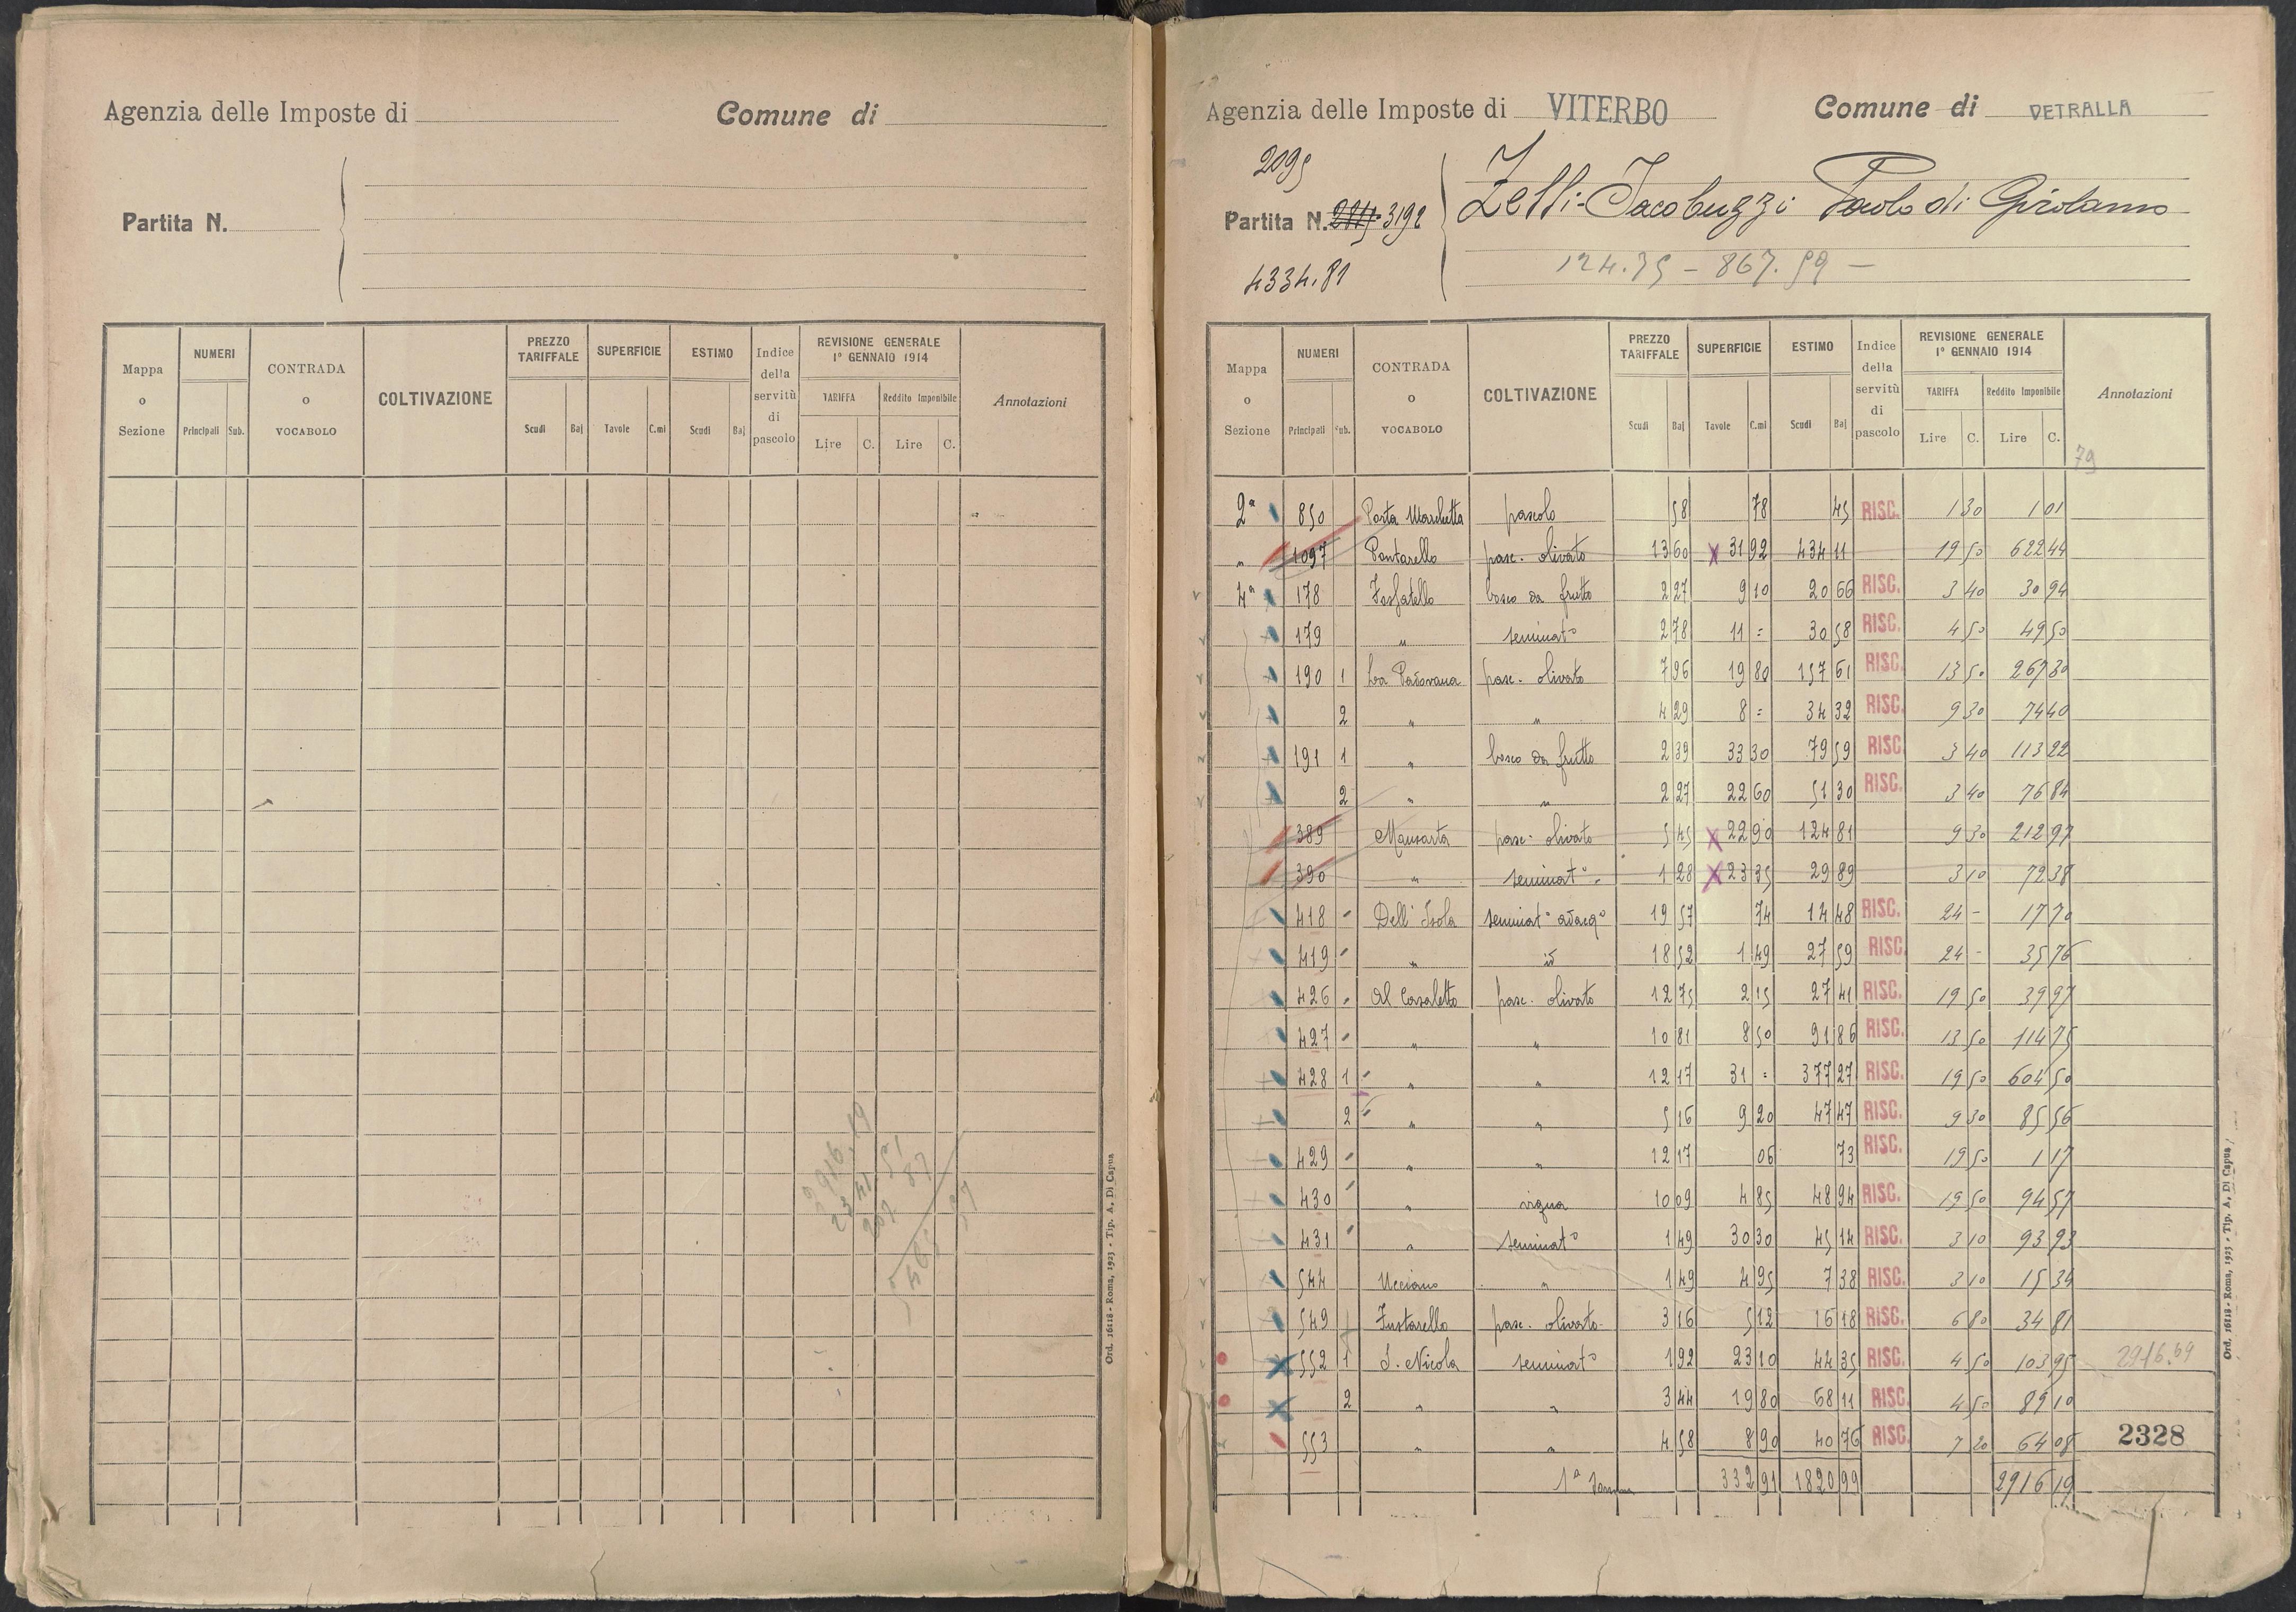 Agenzia delle Imposte di
Comune di
Partita N.
Mappa o Sezione
NUMERI
Principali Sub.
CONTRADA O VOCABOLO
COLTIVAZIONE
PREZZO TARIFFALE
Scudi Baj
SUPERFICIE
Tavole C.mi
ESTIMO
Scudi Baj
Indice della servitù di pascolo
REVISIONE GENERALE 1° GENNAIO 1914
TARIFFA
Lire C.
Reddito Imponibile
Lire C.
Annotazioni
2916,19
Ord. 16118 - Roma, 1923 - Tip. A. Di Capua
Agenzia delle Imposte di VITERBO
Comune di VETRALLA
2095
Partita N. 3192
4334,81
Zelli-Jacobuzzi Paolo di Girolamo
124.75 - 867.59 -
Mappa o Sezione
NUMERI
Principali Sub.
CONTRADA O VOCABOLO
COLTIVAZIONE
PREZZO TARIFFALE
Scudi Baj
SUPERFICIE
Tavole C.mi
ESTIMO
Scudi Baj
Indice della servitù di pascolo
REVISIONE GENERALE 1° GENNAIO 1914
TARIFFA
Lire C.
Reddito Imponibile
Lire C.
Annotazioni
79
2ª 850 Porta Marchetta pascolo 58 78 45 RISC. 1 30 1 01
" 1097 Pontarello pasc. olivato 13 60 x 31 92 434 11 19 50 622 44
4ª 178 Fossatello bosco da frutto 2 27 9 10 20 66 RISC. 3 40 30 94
179 " seminat° 2 78 11 = 30 58 RISC. 4 50 49 50
190 1 La Padovana pasc. olivato 7 96 19 80 157 61 RISC. 13 50 267 30
2 " " 4 29 8 = 34 32 RISC. 9 30 74 40
191 1 " bosco da frutto 2 39 33 30 79 59 RISC. 3 40 113 22
2 " " 2 27 22 60 51 30 RISC. 3 40 76 84
389 Mansarta pasc. olivato 5 45 x 22 90 124 81 9 30 212 97
390 " seminat°. 1 28 x 23 35 29 89 3 10 72 38
418 Dell' Isola seminat° adacq° 19 57 74 14 48 RISC. 24 - 17 76
419 " id 18 52 1 49 27 59 RISC. 24 - 35 76
426 Al Casaletto pasc. olivato 12 75 2 15 27 41 RISC. 19 50 39 97
427 " " 10 81 8 50 91 86 RISC. 13 50 114 75
428 1 " " 12 17 31 = 377 27 RISC. 19 50 604 50
2 " " 5 16 9 20 47 47 RISC. 9 30 85 56
429 " " 12 17 06 73 RISC. 19 50 1 17
430 " vigna 10 09 4 85 48 94 RISC. 19 50 94 57
431 " seminat° 1 49 30 30 45 14 RISC. 3 10 93 93
544 Ucciano " 1 49 4 95 7 38 RISC. 3 10 15 34
549 Fustarello pasc. olivato 3 16 5 12 16 18 RISC. 6 80 34 81
552 1 S. Nicola seminat° 1 92 23 10 44 35 RISC. 4 50 103 95 2916.69
2 " " 3 44 19 80 68 11 RISC. 4 50 89 10
553 " " 4 58 8 90 40 76 RISC. 7 20 64 08 2328
1ª Somma 332 91 1820 99 2916 19
Ord. 16118 - Roma, 1923 - Tip. A. Di Capua